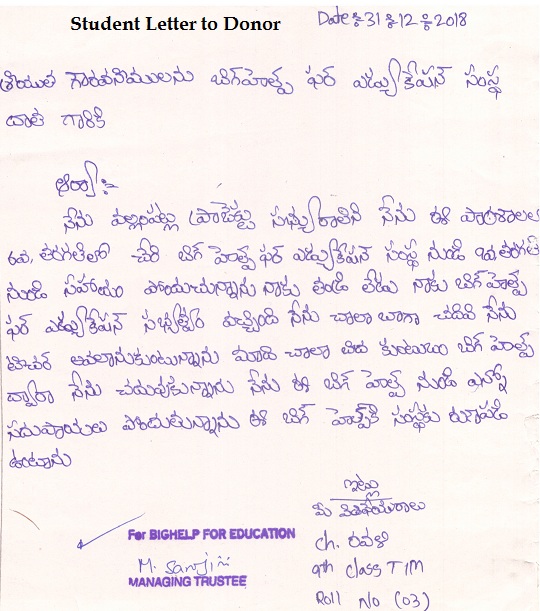 Student Letter to Donor
Date : 31 : 12 : 2018
శ్రీయుత గౌరవనీములను బిగ్‌హెల్ప్ ఫర్ ఎడ్యుకేషన్ సంస్థ
దాత గారికి
ఆర్యా :-
నేను పల్లిపట్టు ప్రాజెక్టు సభ్యురాలిని నేను ఈ పాఠశాలలో
6వ, తరగతిలో చేరి బిగ్ హెల్ప్ ఫర్ ఎడ్యుకేషన్ సంస్థ నుండి తరగతి
నుండి సహాయం పోయుచున్నాను నాకు తండ్రి లేడు నాకు బిగ్‌హెల్ప్
ఫర్ ఎడ్యుకేషన్ సభ్యత్వం ఇచ్చింది నేను చాలా బాగా చదివి నేను
టీచర్ అవలానుకుంటున్నాను మాది చాలా పేద కుటుంబం బిగ్ హెల్ప్
ద్వారా నేను చదువుకున్నాను నేను ఈ బిగ్ హెల్ప్ నుండి ఎన్నో
సదుపాయలు పొందుతున్నాను ఈ బిగ్ హెల్ప్‌కి సంస్థకు రుణపడి
ఉంటాను
ఇట్లు
మీ విధేయురాలు
Ch. రవళి
9th class TIM
Roll No (03)
For BIGHELP FOR EDUCATION
MANAGING TRUSTEE